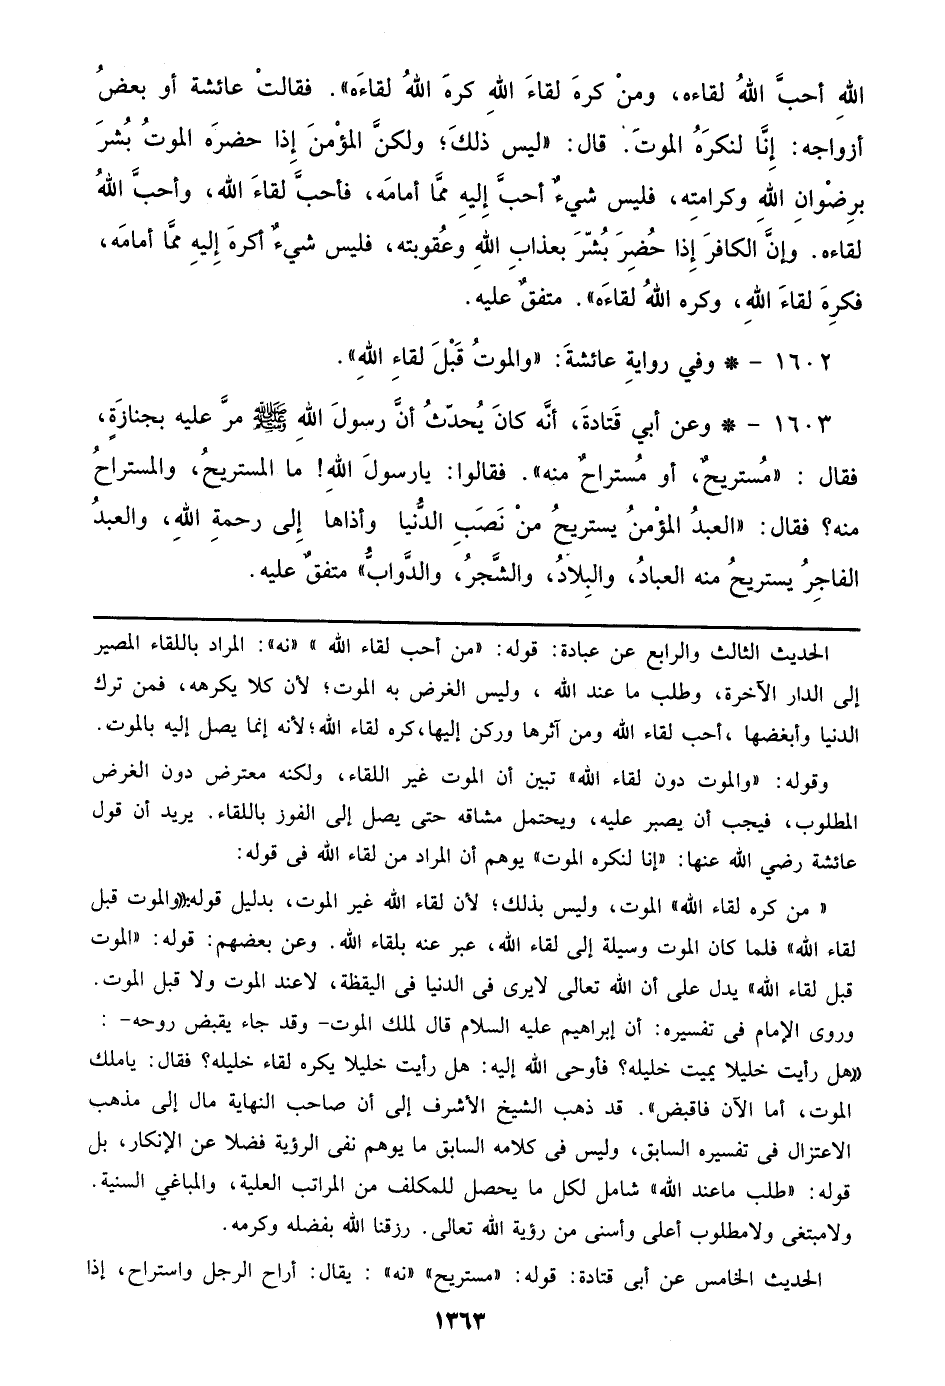 اللهِ أحبَّ اللهُ لقاءه، ومنْ كرهَ لقاءَ اللهِ كرهَ اللهُ لقاءَه». فقالتْ عائشة أو بعضُ
أزواجه: إنَّا لنكرَهُ الموتَ. قال: «ليس ذلكَ؛ ولكنَّ المؤْمنَ إذا حضرَه الموتُ بُشرَ
برضْوانِ اللهِ وكرامتِه، فليس شيءٌ أحبَّ إليهِ ممَّا أمامَه، فأحبَّ لقاءَ الله، وأحبَّ اللهُ
لقاءه. وإنَّ الكافرَ إذا حُضِرَ بُشّرَ بعذابِ اللهِ وعُقوبته، فليس شيءٌ أكرهَ إليهِ ممَّا أمامَه،
فكرِهَ لقاءَ اللهِ، وكره اللهُ لقاءَه». متفقٌ عليه.
١٦٠٢ - * وفي روايةِ عائشةَ: «والموتُ قَبْلَ لقاءِ اللهِ».
١٦٠٣ - * وعن أبي قَتادةَ، أنَّه كانَ يُحدّثُ أنَّ رسولَ اللهِ ﷺ مرَّ عليه بجنازةٍ،
فقال : «مُستريحٌ، أو مُستراحٌ منه». فقالوا: يارسولَ اللهِ! ما المستريحُ، والمستراحُ
منه؟ فقال: «العبدُ المؤْمنُ يستريحُ منْ نَصَبِ الدُّنيا وأذاها إلى رحمةِ اللهِ، والعبدُ
الفاجرُ يستريحُ منه العبادُ، والبِلادُ، والشَّجرُ، والدَّوابُّ» متفقٌ عليه.
الحديث الثالث والرابع عن عبادة: قوله: «من أحب لقاء الله » «نه»: المراد باللقاء المصير
إلى الدار الآخرة، وطلب ما عند الله ، وليس الغرض به الموت؛ لأن كلا يكرهه، فمن ترك
الدنيا وأبغضها ،أحب لقاء الله ومن آثرها وركن إليها،كره لقاء الله؛لأنه إنما يصل إليه بالموت.
وقوله: «والموت دون لقاء الله» تبين أن الموت غير اللقاء، ولكنه معترض دون الغرض
المطلوب، فيجب أن يصبر عليه، ويحتمل مشاقه حتى يصل إلى الفوز باللقاء. يريد أن قول
عائشة رضي الله عنها: «إنا لنكره الموت» يوهم أن المراد من لقاء الله فى قوله:
« من كره لقاء الله» الموت، وليس بذلك؛ لأن لقاء الله غير الموت، بدليل قوله:«والموت قبل
لقاء الله» فلما كان الموت وسيلة إلى لقاء الله، عبر عنه بلقاء الله. وعن بعضهم: قوله: «الموت
قبل لقاء الله» يدل على أن الله تعالى لايرى فى الدنيا فى اليقظة، لاعند الموت ولا قبل الموت.
وروى الإمام فى تفسيره: أن إبراهيم عليه السلام قال لملك الموت- وقد جاء يقبض روحه- :
«هل رأيت خليلا يميت خليله؟ فأوحى الله إليه: هل رأيت خليلا يكره لقاء خليله؟ فقال: ياملك
الموت، أما الآن فاقبض». قد ذهب الشيخ الأشرف إلى أن صاحب النهاية مال إلى مذهب
الاعتزال فى تفسيره السابق، وليس فى كلامه السابق ما يوهم نفى الرؤية فضلا عن الإنكار، بل
قوله: «طلب ماعند الله» شامل لكل ما يحصل للمكلف من المراتب العلية، والمباغي السنية.
ولامبتغى ولامطلوب أعلى وأسنى من رؤية الله تعالى. رزقنا الله بفضله وكرمه.
الحديث الخامس عن أبى قتادة: قوله: «مستريح» «نه» : يقال: أراح الرجل واستراح، إذا
١٣٦٣